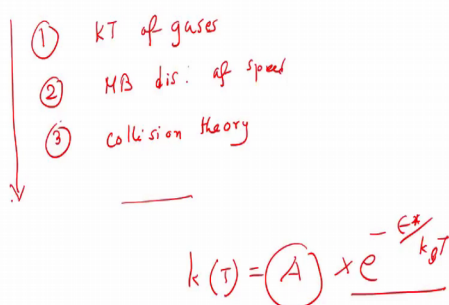 ① KT of gases
② MB dis: of speed
③ collision theory
k(T) = A × e^{-ϵ*/k_BT}